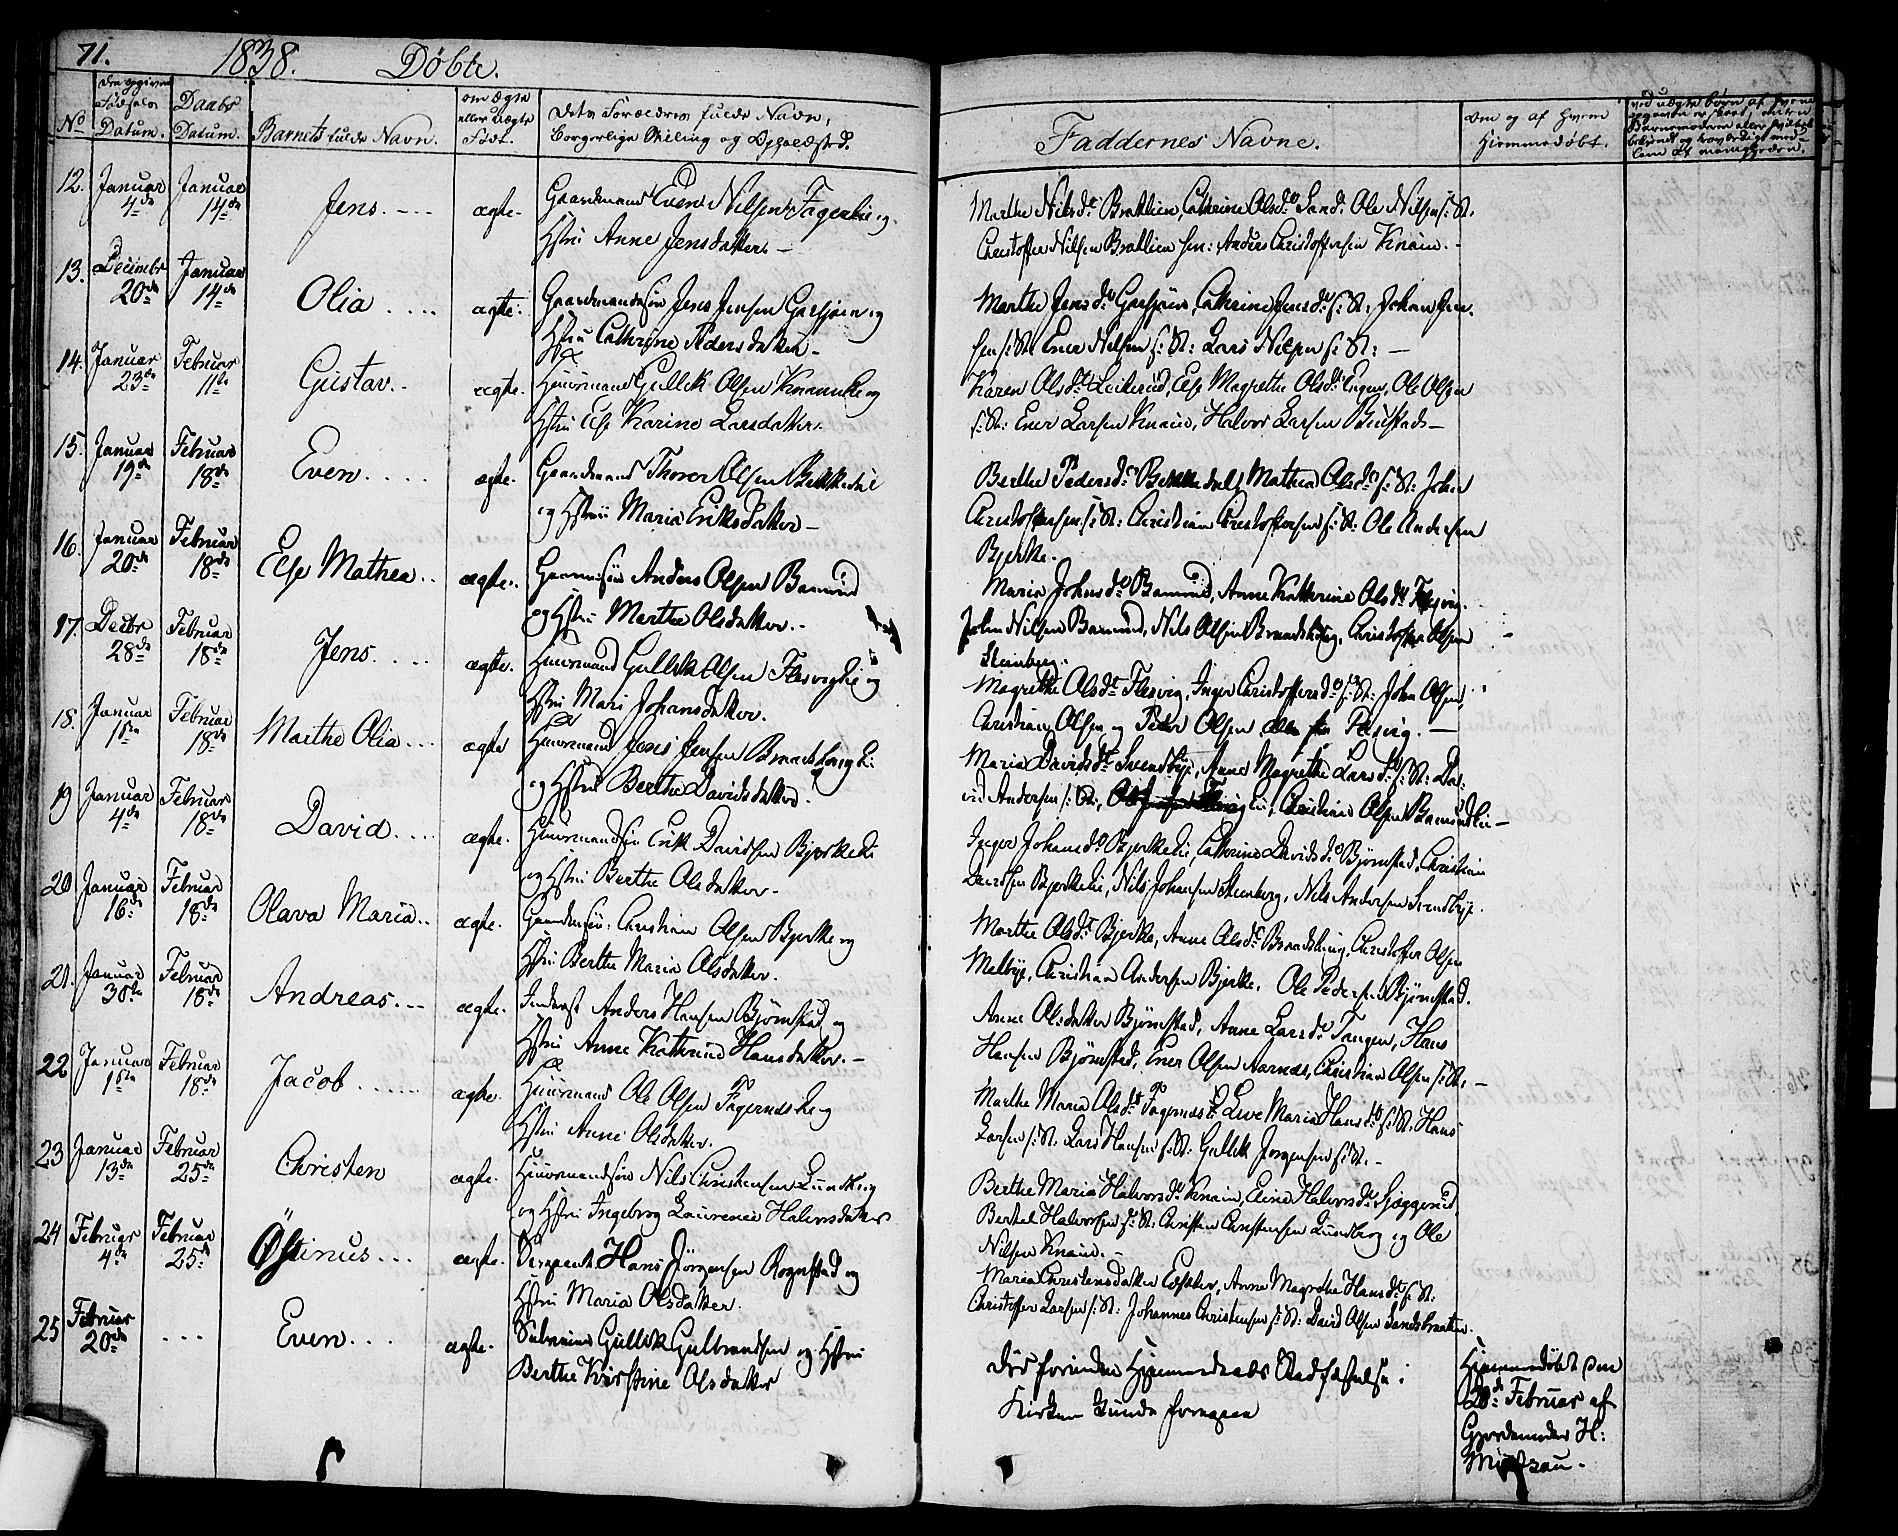 71. 1838. Døbte.
No
Datum.
Daabs
Datum.
Barnets fulde Navn.
om ægte
eller uægte
Født.
Dets Forældres fulde Navn,
borgerlige Stilling og Opholdsted.
Faddernes Navne.
Om og af hvem
hjemmedøbt.
12. Januar 4de Januar 14de Jens. ægte. Gaardmand Even Nilsen Fagerlie og
Hstru Anne Jensdatter.
Marthe Nilsdr Brathlien, Cathrine Olsdr Sand. Ole Nilsen s: St.
Christoffer Nilsen Brathlien Anders Christoffersen Knain.
13. Decembr 20de Januar 14de Olia ægte. Gaardmandssøn Jens Jensen Garsjøen og
Hstru Cathrine Pedersdatter
Marthe Jensdr Garsjøen, Cathrine Jensdr s: St: Johan Jen-
sen s: St: Ener Nilsen s: St: Lars Nilsen s: St:
14. Januar 23de Februar 11te Gustav. ægte. Huusmand Gullik Olsen og
Hstru Else Karine Larsdatter.
Karen Olsdr Else Magrethe Olsdr Ole Olsen
s: St: Ener Larsen Knain, Halvor Larsen
15. Januar 19de Februar 18de Even. ægte. Gaardmand Thorer Olsen Bekkedal
og Hstru Maria Eriksdatter
Berthe Pedersdr Bekkedal, Mathea Olsdr s: St: John
Christoffersen s: St: Christian Christoffersen s: St: Ole Andersen
Bjerke.
16. Januar 20de Februar 18de Else Mathea ægte. Anders Olsen Bamrud
og Hstru Marthe Olsdatter.
Maria Johnsdr Bamrud, Anne Kathrine Olsdr Flesvig.
John Nilsen Bamrud, Nils Olsen Brandshoug, Christoffer Olsen
Steinberg.
17. Decbr 28de Februar 18de Jens. ægte. Huusmand Gullik Olsen Flesviglie og
Hstru Mari Johansdatter.
Magrethe Olsdr Flesvig, Inger Christoffersdr s: St: John Olsen,
Christian Olsen og Peder Olsen Flesvig.
18. Januar 1ste Februar 18de Marthe Olia ægte Huusmand Jens Jensen
og Hstru Berthe Davidsdatter.
Maria Davidsdr Svendbye, Anne Magrethe Larsdr s: St: Da-
vid Andersen s: St:, Christian Olsen Bamrudlie
19 Januar 4de Februar 18de David. ægte. Huusmandssøn Erik Davidsen Bjerkelie
og Hstru Berthe Olsdatter.
Inger Johansdr Bjerkelie, Cathrine Davidsdr Bjørnstad, Christian
Davidsen Bjerkelie, Nils Johansen Steenberg, Nils Andersen Svendbye.
20 Januar 16de Februar 18de Olava Maria ægte. Christian Olsen Bjerke og
Hstru Berthe Maria Olsdatter.
Marthe Olsdr Bjerke, Anne Olsdr Brandshoug, Christoffer Olsen
Melbye, Christian Andersen Bjerke, Ole Pedersen Bjørnstad.
21. Januar 30te Februar 18de Andreas. ægte. Inderst Anders Hansen Bjørnstad og
Hstru Anne Kathrine Hansdatter.
Anne Olsdatter Bjørnstad, Anne Larsdr Tangen, Hans
Hansen Bjørnstad, Ener Olsen Aarnæs, Christian Olsen s: St:
22 Januar 1ste Februar 18de Jacob ægte. Huusmand Ole Olsen Fagernæs og
Hstru Anne Olsdatter.
Marthe Maria Olsdr Fagernæs, Live Maria Hansdr s: St. Hans
Larsen s: St. Lars Hansen s: St. Gullik Jørgensen s: St.
23 Januar 13de Februar 25de Christen ægte. Huusmandssøn Nils Christensen
og Hstru Ingeborg Laurence Halvorsdatter
Berthe Maria Halvorsdr Knain, Eline Halvorsdr
Berthel Halvorsen s: St: Christen Christensen Lundberg og Ole
Nilsen Knain.
24 Februar 4de Februar 25de Østinus ægte. Sergeant Hans Jørgensen Rognstad og
Hstru Maria Olsdatter.
Maria Christensdatter Anne Magrethe Hansdr s: St.
Christoffer Larsen s: St: Johannes Christensen s: St: David Olsen Sandsbraaten.
25 Februar 20de Even ægte. Gullik Gulbrandsen og Hstru
Berthe Kirstine Olsdatter
død forinden Hjemmedaabs Stadfæstelse i
Kirken kunde foregaae
Hjemmedøbt den
20de Februar af
Gjordemoder H: